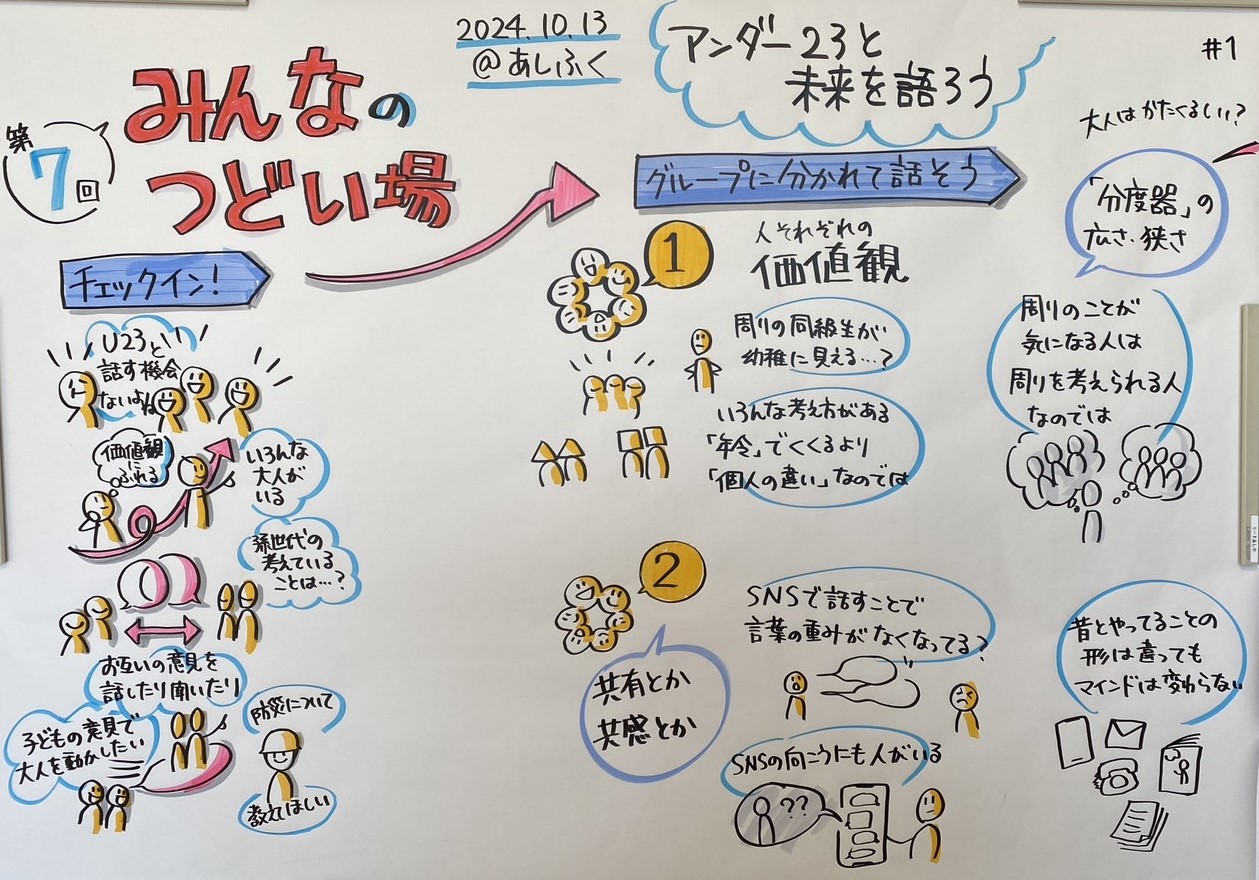 2024.10.13
@あしふく
アンダー23と
未来を語ろう
#1
第7回
みんなの
つどい場
チェックイン!
U23と
話す機会
ないよね
価値観
に
ふれる
いろんな
大人が
いる
孫世代の
考えている
ことは…?
お互いの意見を
話したり聞いたり
子どもの意見で
大人を動かしたい
防災について
教えてほしい
グループに分かれて話そう
1
人それぞれの
価値観
周りの同級生が
幼稚に見える…?
いろんな考え方がある
「年令」でくくるより
「個人の違い」なのでは
大人はかたくるしい?
「分度器」の
広さ・狭さ
周りのことが
気になる人は
周りを考えられる人
なのでは
2
共有とか
共感とか
SNSで話すことで
言葉の重みがなくなってる?
SNSの向こうにも人がいる
??
昔とやってることの
形は違っても
マインドは変わらない